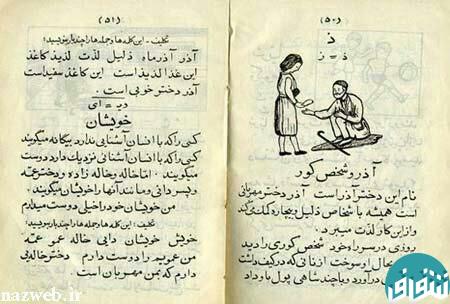 (۵۰)
ذ
ذ = ز
آذر و شخص کور
نام این دختر آذر است آذر دختر مهربانی
است همیشه باشخاص ذلیل و بیچاره کمک میکند
و از این کار لذت میبرد
روزی در سر راه خود شخص کوری را دید
بحال او سوخت
در آورد و با چند شاهی پول باو داد
(۵۱)
تکلیف: این کلمه ها و جمله ها را چند بار بنویسید:
آذر آذرماه ذلیل لذت لذیذ کاغذ
این غذا لذیذ است این کاغذ سفید است
آذر دختر خوبی است .
خویشان
کسی را که با انسان آشنایی ندارد بیگانه میگویند
کسی را که با انسان آشنائی نزدیک دارد دوست
میگویند . اما خاله و خاله زاده و دختر عمه
و پسر دائی و مانند آنها را خویشان میگویند .
من خویشان خود را خیلی دوست میدارم
تکلیف: این کلمه ها و جمله ها را چند بار بنویسید:
خویش خویشان دایی خاله عمو عمه
من عمویم را دوست دارم دختر خاله ای
دارم که بمن مهربان است .
nazweb.ir